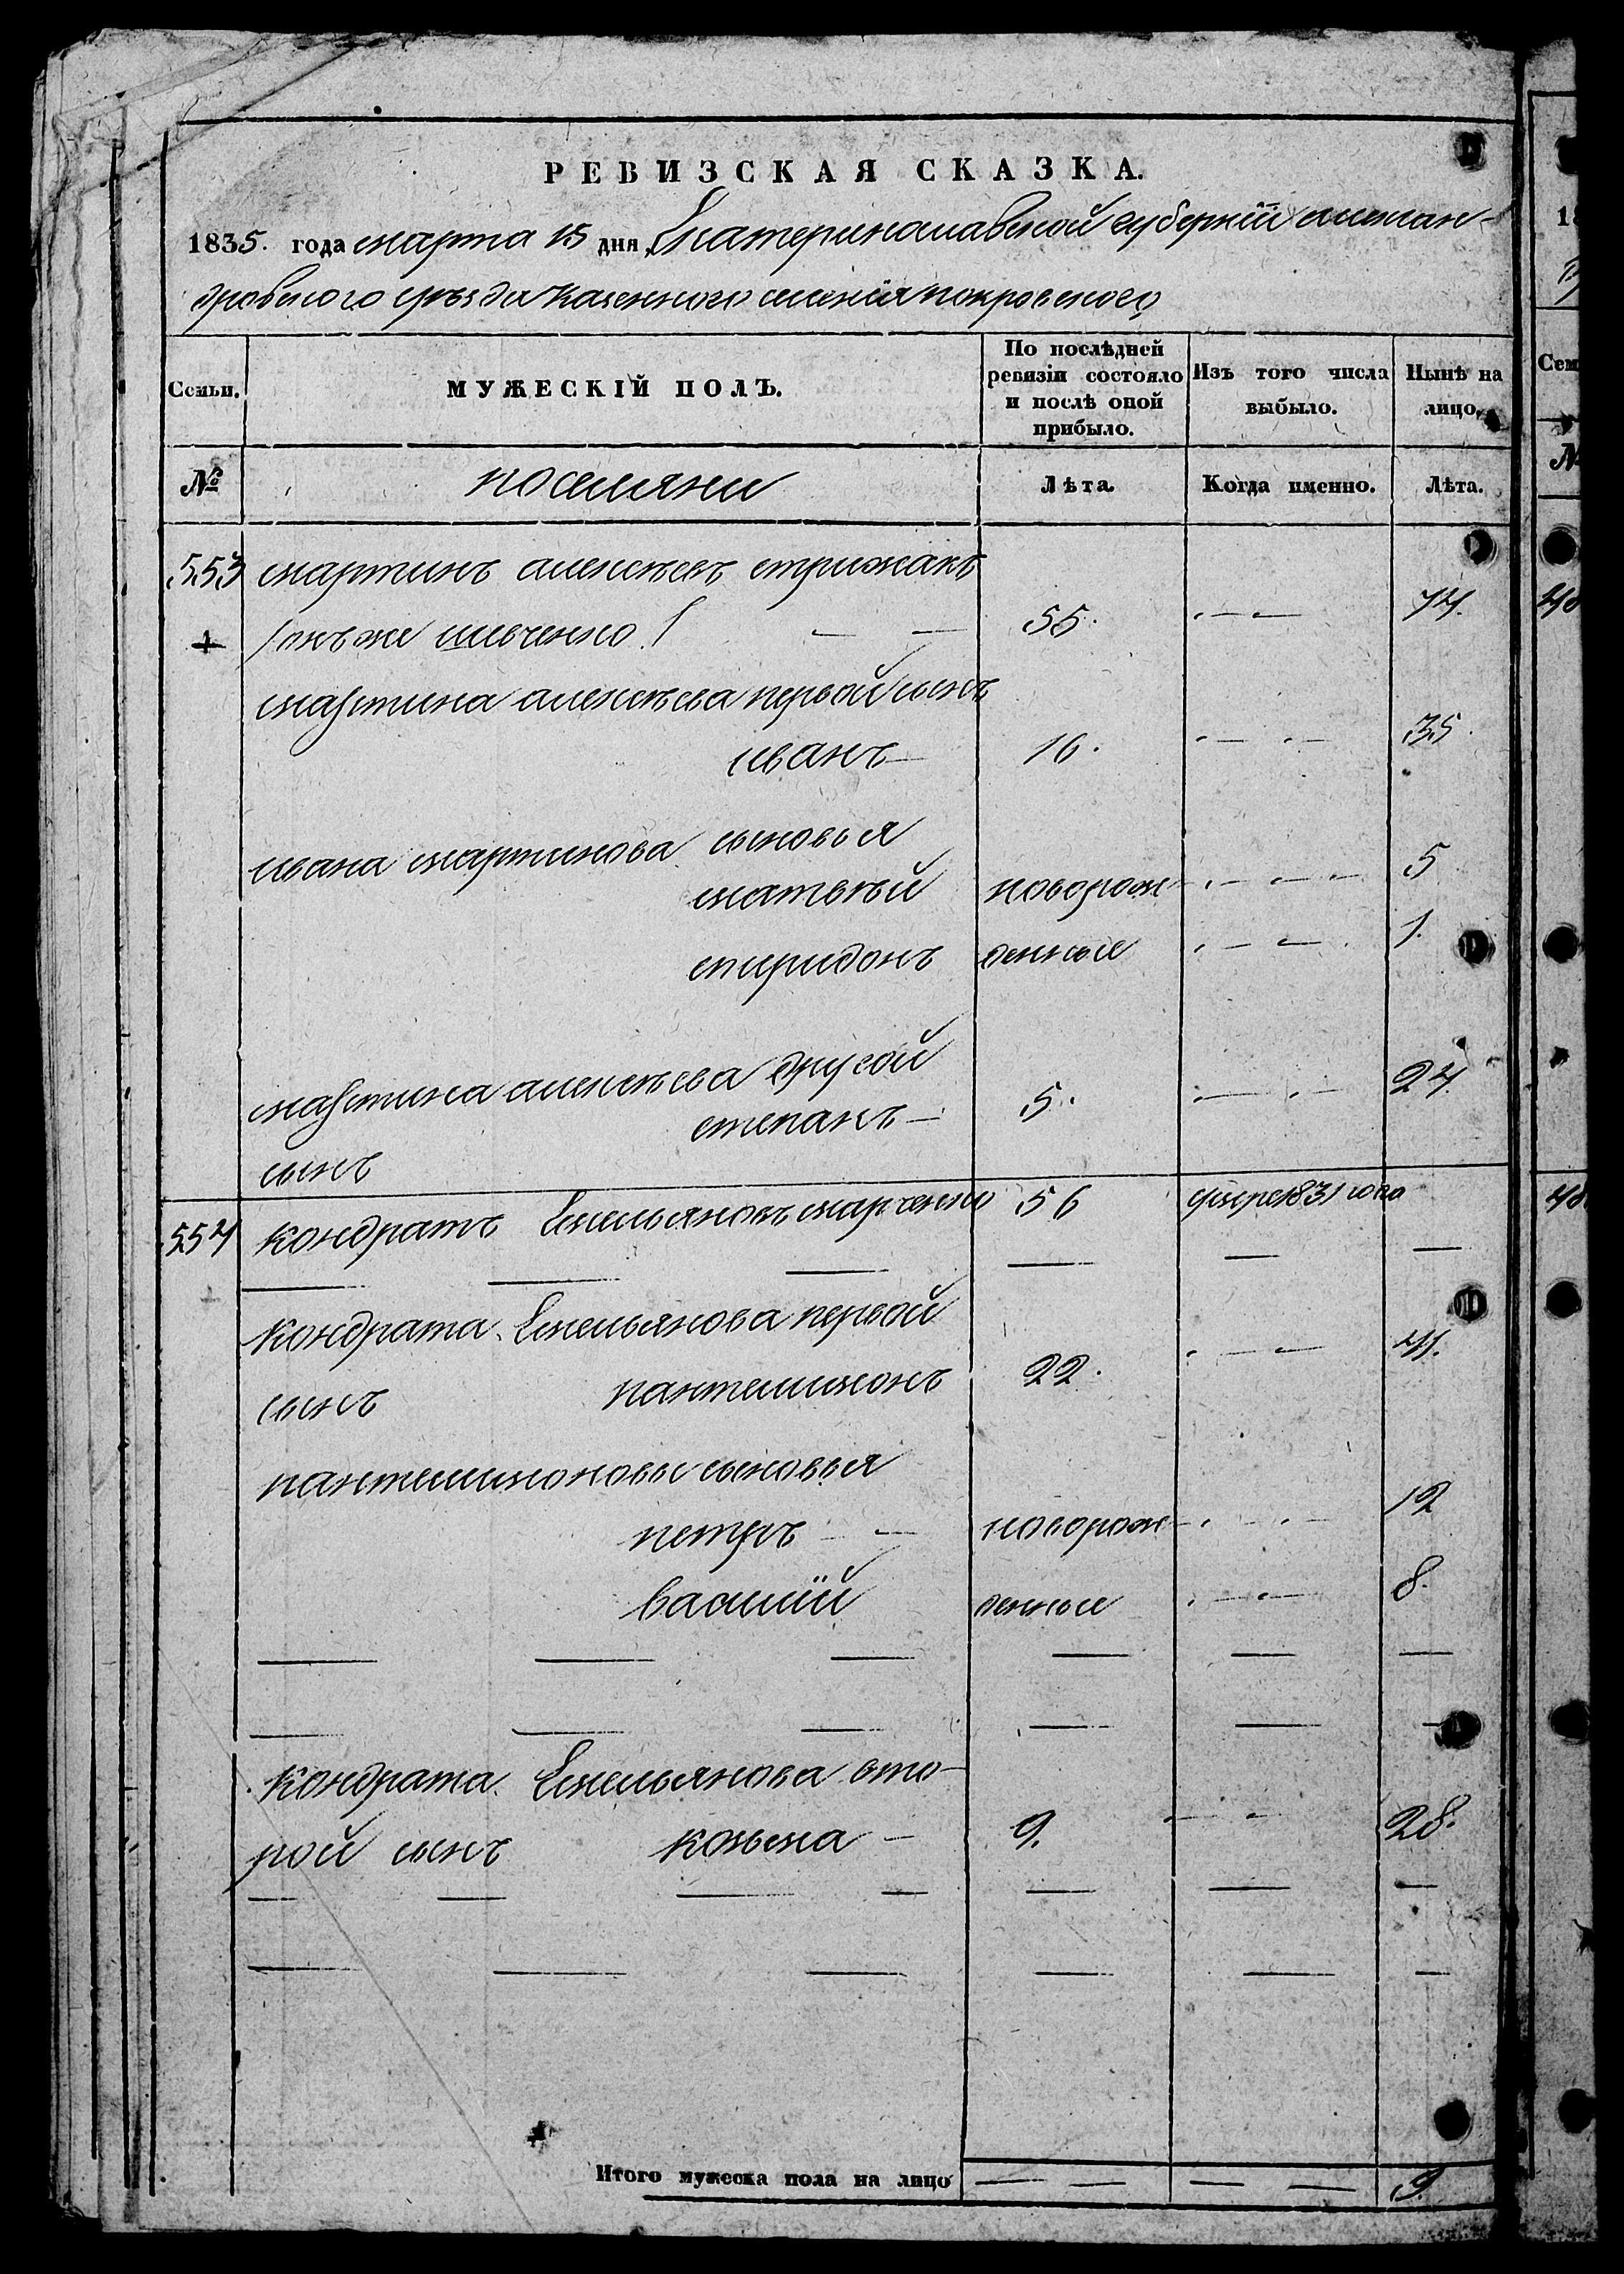 РЕВИЗСКАЯ СКАЗКА.
1835. года марта 15 дня Екатеринославской губернїи алексан-
дровского уѣзда казенного селенїя покровского
Семьи. МУЖЕСКІЙ ПОЛЪ. По послѣдней ревизіи состояло и послѣ оной прибыло. Изъ того числа выбыло. Нынѣ на лицо.
№ поселяни Лѣта. Когда именно. Лѣта.
553 мартинъ алексѣевъ стрижакъ
/онъ же шевченко/ — — 55. — — 74.
мартина алексѣева первой сынъ
иванъ — 16. — — 35.
ивана мартинова сыновья
матвѣй новорож — — — 5
спиридонъ денные — — 1.
мартина алексѣева другой
степанъ — 5. — — 24
сынъ
554 кондратъ Емельяновъ марченко 56 умре 1831 года —
кондрата Емельянова первой
сынъ пантелимонъ 22. — — 41.
пантелимоновы сыновья
петръ — — новорож — — — 12
василїй денные — — 8.
кондрата Емельянова вто-
рой сынъ козьма — 9. — — 28.
Итого мужеска пола на лицо — — — — 9.
18
Сем
№